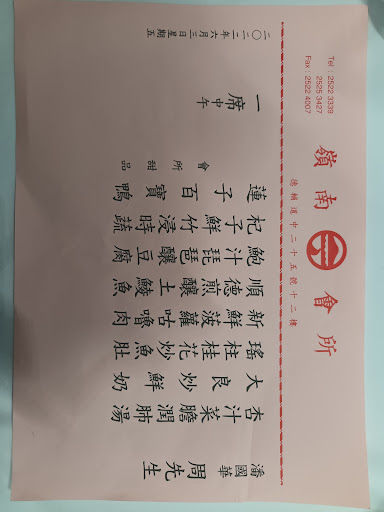 Tel : 2522 3339
2525 3427
Fax : 2522 4007
嶺南會所
德輔道中二十五號十二樓
潘國華 周先生
杏汁菜膽潤肺湯
大良炒鮮奶
瑤柱桂花炒魚肚
新鮮菠蘿咕嚕肉
順德煎釀土鯪魚
鮑汁琵琶釀豆腐
杞子鮮竹浸時蔬
蓮子百寶鴨
會所甜品
一席 中午
二〇二二年六月三日星期五